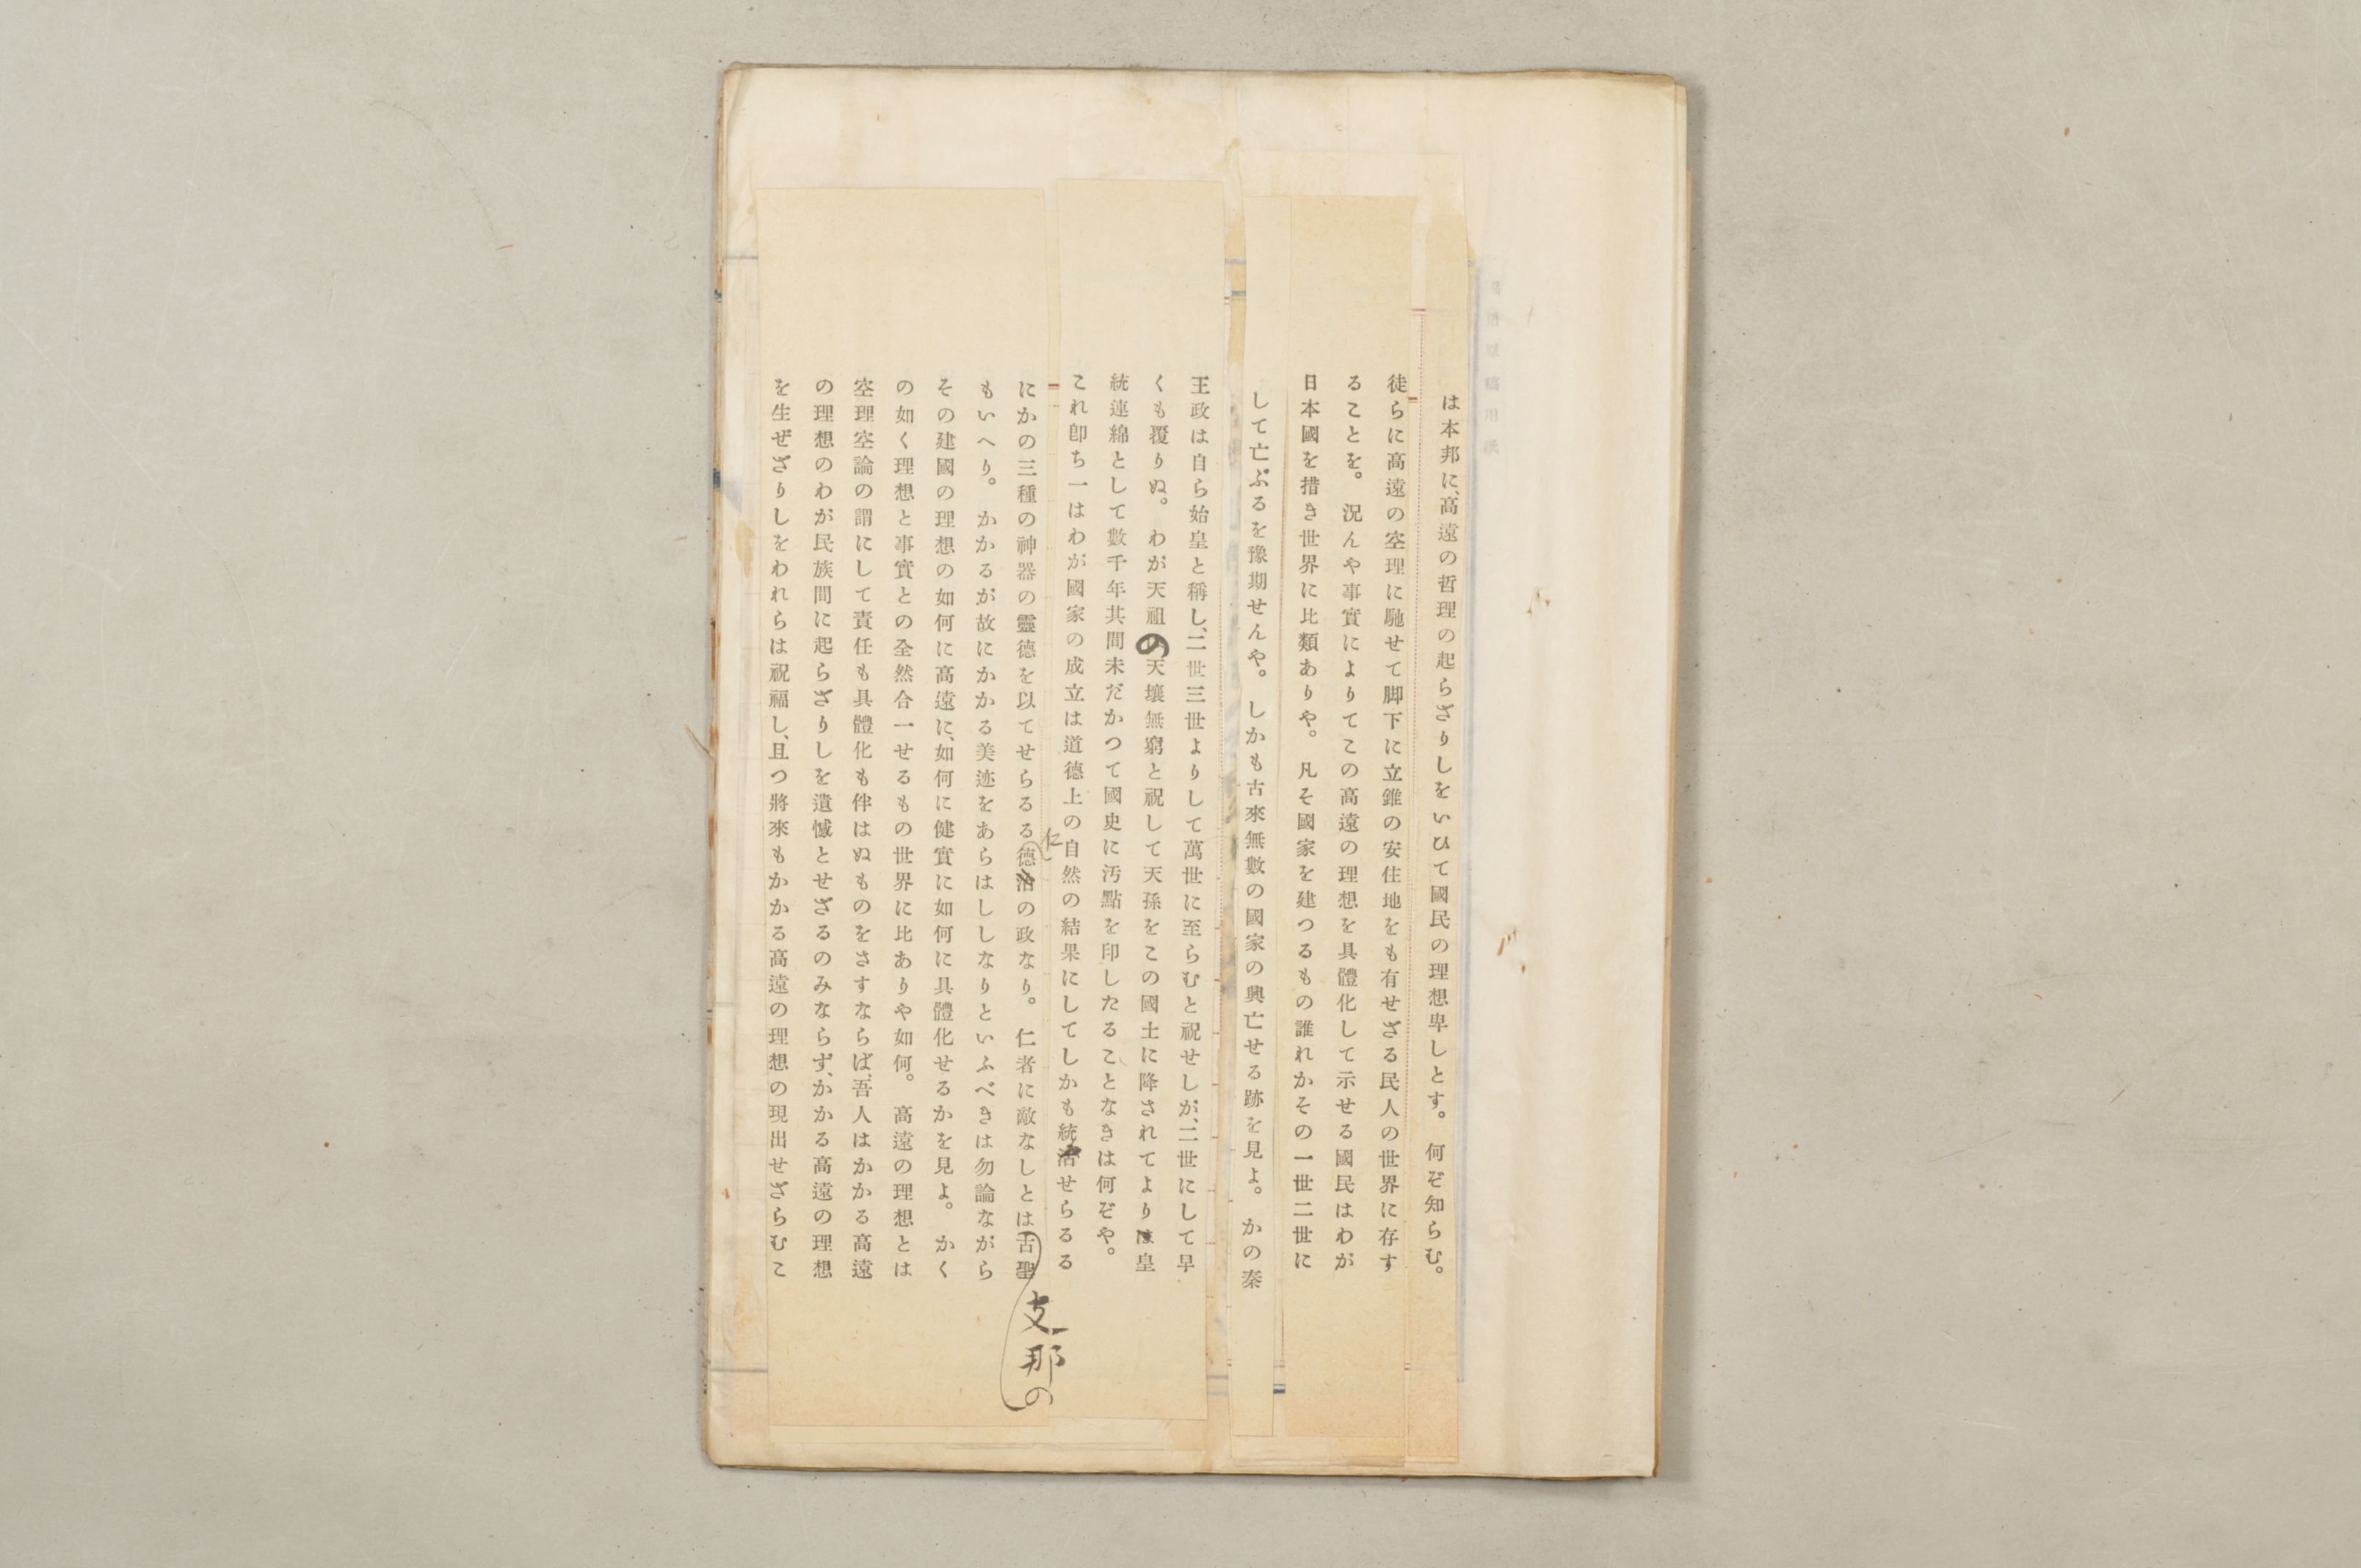 は本邦に、高遠の哲理の起らざりしをいひて國民の理想卑しとす。何ぞ知らむ。
徒らに高遠の空理に馳せて脚下に立錐の安住地をも有せざる民人の世界に存す
ることを。況んや事實によりてこの高遠の理想を具體化して示せる國民はわが
日本國を措き世界に比類ありや。凡そ國家を建つるもの誰れかその一世二世に
して亡ぶるを豫期せんや。しかも古來無數の國家の興亡せる跡を見よ。かの秦
王政は自ら始皇と稱し、二世三世よりして萬世に至らむと祝せしが、二世にして早
くも覆りぬ。わが天祖の天壤無窮と祝して天孫をこの國土に降されてよりは皇
統連綿として數千年其間未だかつて國史に汚點を印したることなきは何ぞや。
これ卽ち一はわが國家の成立は道德上の自然の結果にしてしかも統治せらるる
仁
にかの三種の神器の靈德を以てせらるる德治の政なり。仁者に敵なしとは古聖
支那の
もいへり。かかるが故にかかる美迹をあらはししなりといふべきは勿論ながら
その建國の理想の如何に高遠に、如何に健實に如何に具體化せるかを見よ。かく
の如く理想と事實との全然合一せるもの世界に比ありや如何。高遠の理想とは
空理空論の謂にして責任も具體化も伴はぬものをさすならば、吾人はかかる高遠
の理想のわが民族間に起らざりしを遺憾とせざるのみならず、かかる高遠の理想
を生ぜざりしをわれらは祝福し、且つ將來もかかる高遠の理想の現出せざらむこ